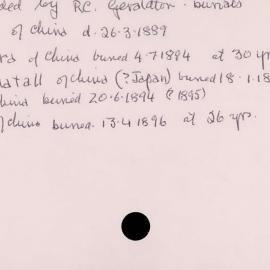 ded by R.C. Geraldton - burials
of China d. 26.3.1889
of China buried 4.7.1894 at 30 yr
of China (? Japan) buried 18.1.18
China buried 20.6.1894 (? 1895)
of China buried 13.4.1896 at 26 yrs.